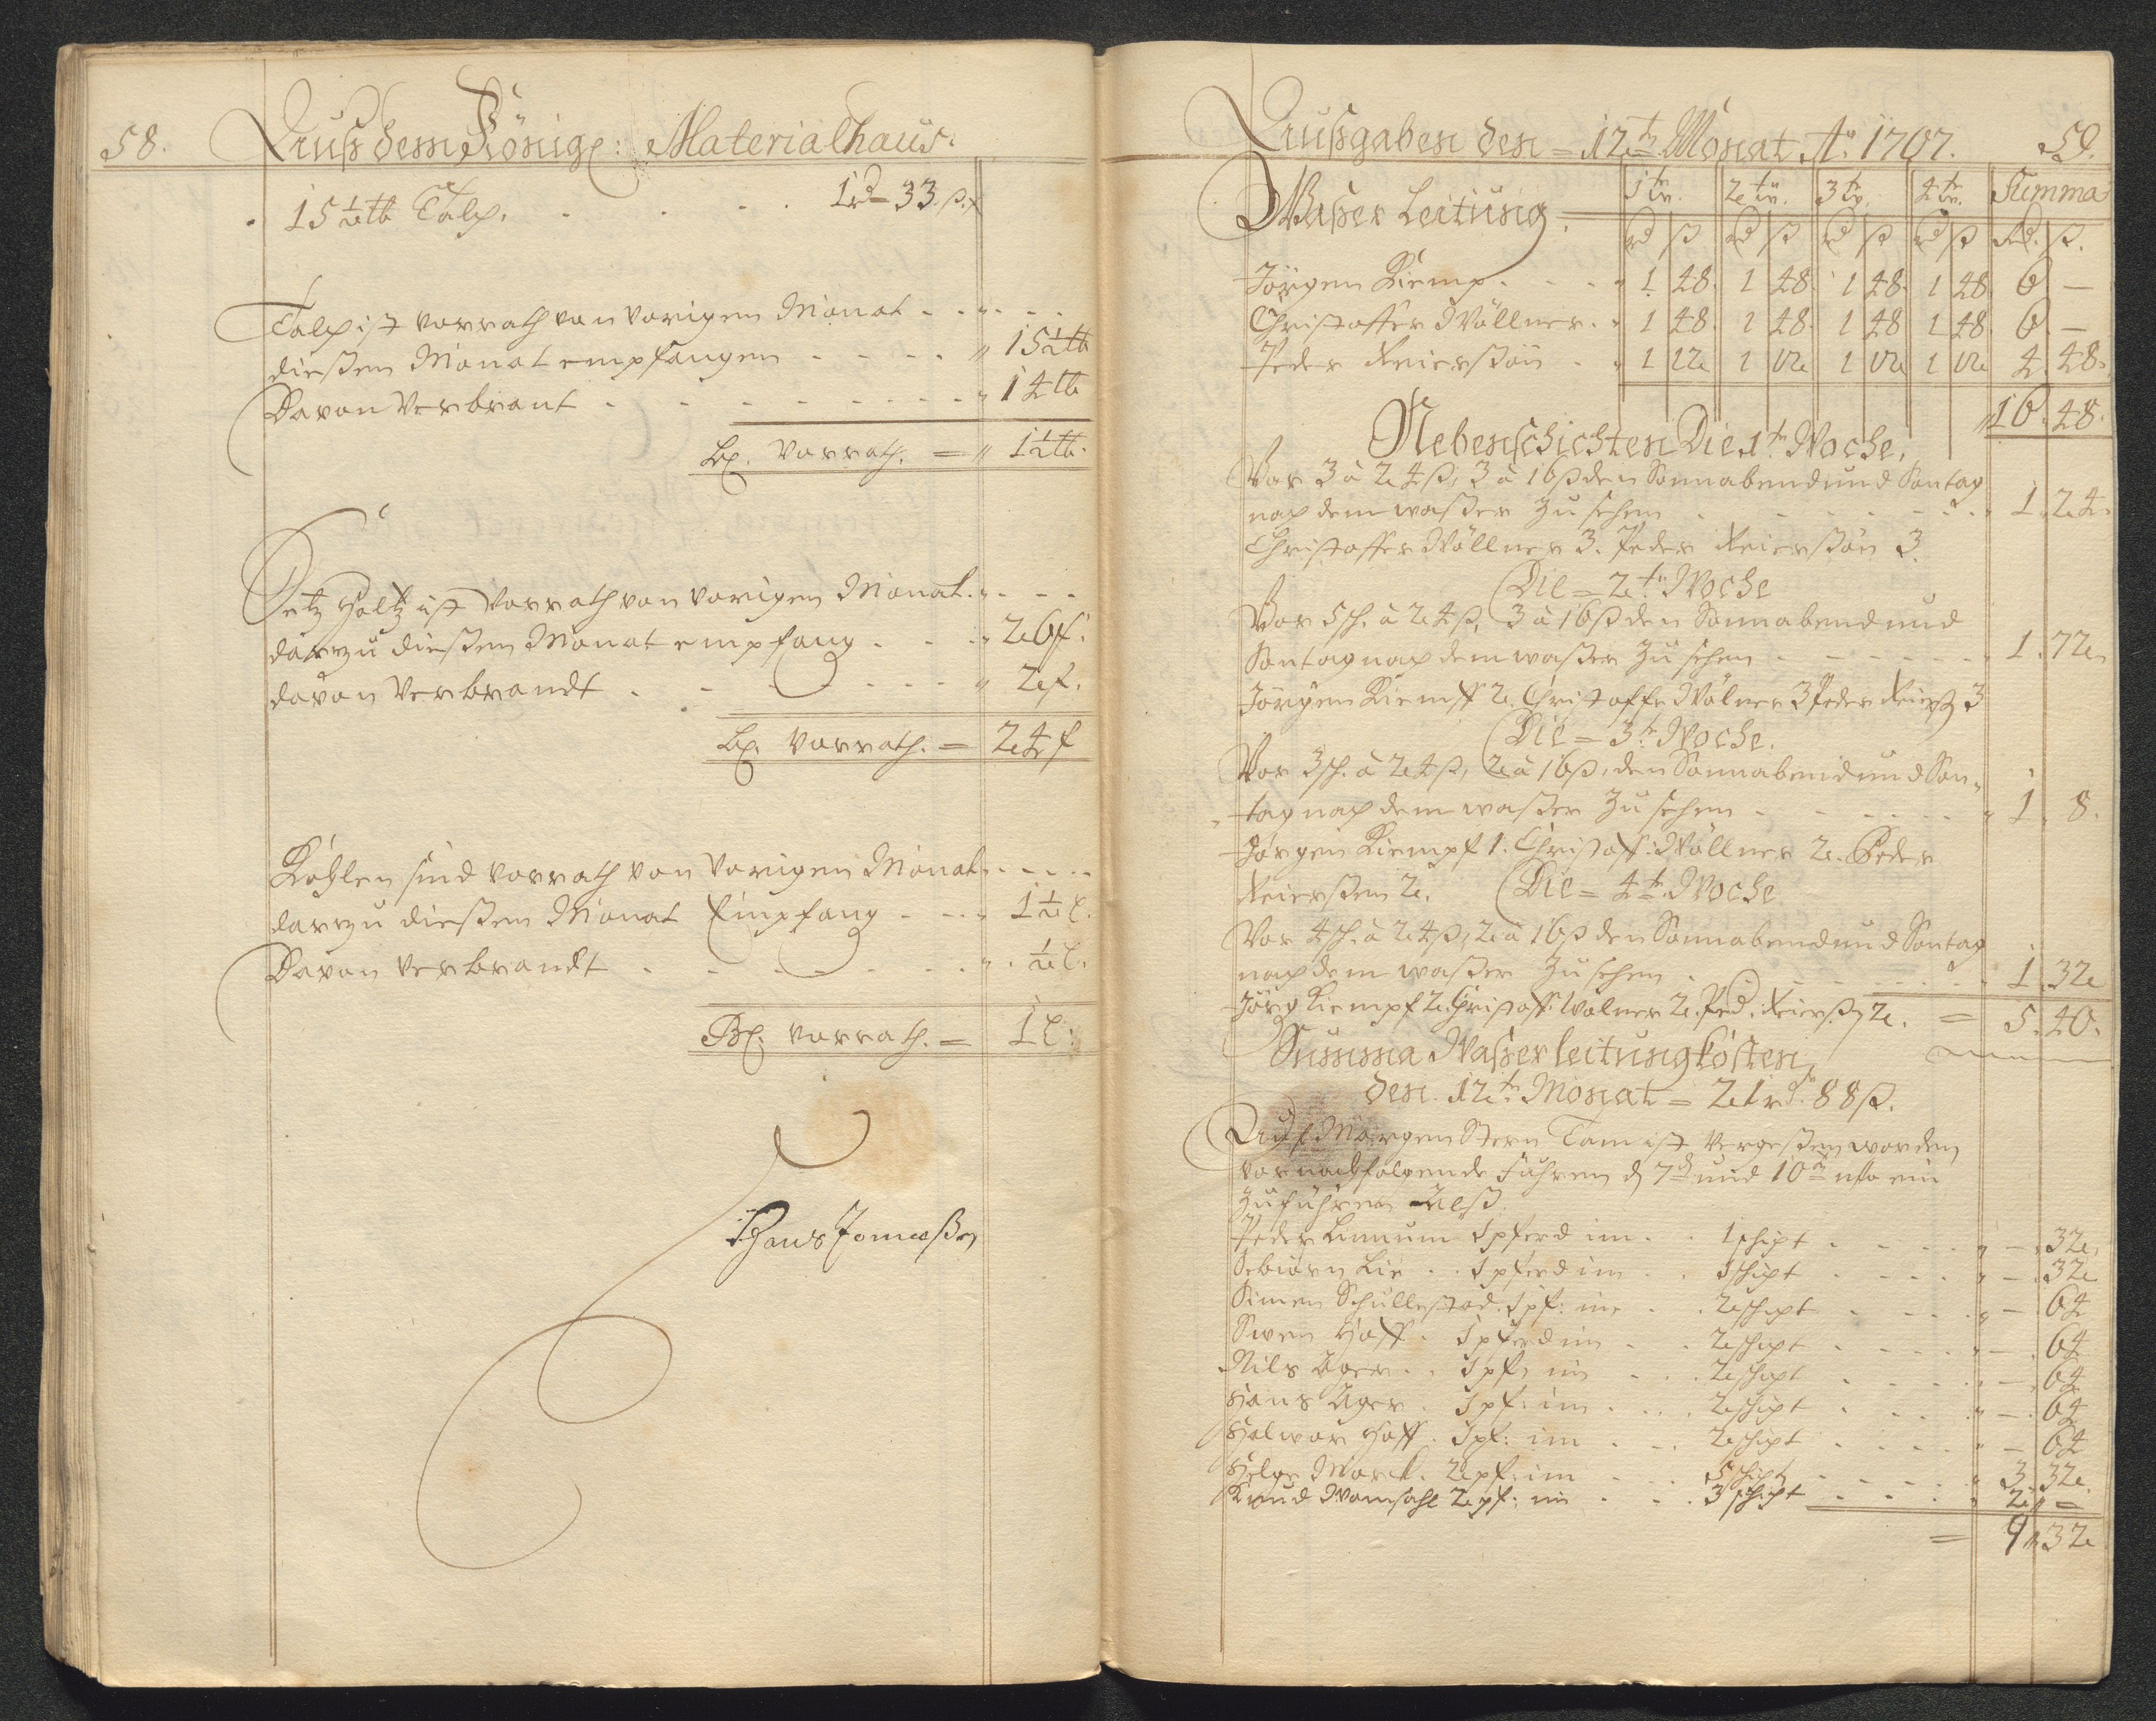 58.
Auß dem Königl: Materialhaus.
15½ lb Talch. . . . . 1 rd 33 ß.
Talch ist vorrath von vorigen Monat . . „ . . .
dießen Monat empfangen . . . . „ 15½ lb
Davon Verbrant . . . . . . . . „ 14 lb
Bl. Vorrath. = „ 1½ lb.
Setz Holtz ist Vorrath von vorigen Monat. „ . . .
darzu dießen Monat empfang . . . „ 26 f.
davon Verbrandt . . . . . . . „ 2 f.
Bl. Vorrath. = 24 f
Kohlen sind vorrath von Vorigen Monat . . . .
darzu dießen Monat Empfang . . . „ 1½ l.
Davon Verbrandt . . . . . . . „ ½ l.
Bl. vorrath. = 1 l.
Außgaben den = 12tn Monat Ao 1707. 59.
Waßer Leitung. 1 tn w. 2 tn w. 3 tn w. 4 tn w. Summa
rd ß rd ß rd ß rd ß Rd. ß.
Jörgen Kiemp. . . . „ 1 48. 1 48. 1 48. 1 48. 6 —
Christoffer Wöllner. . „ 1 48. 1 48. 1 48 1 48. 6. —
Peder Reierßön . . „ 1 12 1 12 1 12 1 12 4. 48.
„ 16. 48.
Nebenschichten Die 1tn Woche,
Vor 3 à 24 ß, 3 à 16 ß den Sonnabend und Sontag
nach dem waßer Zu sehen . . . . . . . „ 1. 24.
Christoffer Wöllner 3. Peder Reierßön 3.
Die = 2tn Woche
Vor 5 sch. à 24 ß, 3 à 16 ß den Sonnabend und
Sontag nach dem waßer Zu sehen . . . . . . . „ 1. 72.
Jörgen Kiempff 2. Christoffer Wölner 3 Peder Reierß 3
Die = 3tn Woche.
Vor 3 sch. à 24 ß, 2 à 16 ß, den Sonnabend und Son-
tag nach dem waßer Zu sehen . . . . . . „ 1. 8.
Jörgen Kiempf 1. Christoff: Wöllner 2. Peder
Reierßen 2. Die = 4tn Woche
Vor 4 sch. à 24 ß, 2 à 16 ß den Sonnabend und Sontag
nach dem waßer Zu sehen . . . . . . . . 1. 32
Jörg Kiempf 2. Christoff. Wölner 2. Ped. Reierß 2. = 5. 40.
Summa Waßerleitung kosten
den. 12tn Monat = 21 rd. 88 ß.
Auf Morgen Stern Tam ist Vergeßen worden
vor nachfolgende Fuhren d 7d und 10d ein
Zu führen Alß.
Peder 1 pferd im . . 1 schicht . . . . „ — 32.
Sebiörn Lie . . 1 pferd im . . 1 schicht . . . . „ — 32
Simen Schullestad. 1 pf: im . . 2 schicht . . . „ — 64
Swen Hoff . 1 pferd im . . 2 schicht . . . . „ — 64
Nils Ager . . 1 pf: im . . . 2 schicht . . . . „ — 64
Hans Ager . 1 pf: im . . . 2 schicht . . . „ — 64
Halwor Hoff . 1 pf: im . . . 2 schicht . . . . „ — 64
Helge Morck. 2 pf: im . . . 5 schicht . . . . „ 3. 32.
Knud 2 pf: im . . . 3 schicht . . . . „ 2 „ =
= 9 „ 32